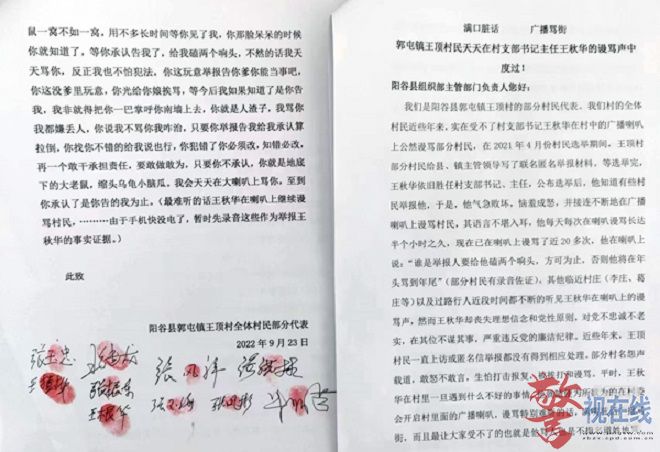 鼠一窝不如一窝，用不多长时间等你见了我，你那脸呆呆的时候
你就知道了，等你承认告我了，给我磕两个响头，不然的话我天天
骂你，反正我也不怕犯法，你这玩意举报告你爹你能当事吧，
你这没爹里玩意，你光给你娘挨骂，等今后我如果知道了是你告
我，我非就得把你一巴掌呼你南墙上去，你就是人渣子，我骂你
我都嫌丢人，你说我不骂你我咋治，只要你举报告我给我承认算
拉倒，你找你不错的给我说也行，你犯错了你必须改，知错必改，
再一个敢干承担责任，要敢做敢为，只要你不承认，你就是地底
下的大老鼠，缩头乌龟小脑瓜。我会天天在大喇叭上骂你。至到
你承认了是你告的我为止。（最难听的话王秋华在喇叭上继续谩
骂村民，………由于手机快没电了，暂时先录音这些作为举报王
秋华的事实证据。）
此致
阳谷县郭屯镇王顶村全体村民部分代表
2022 年 9 月 23 日
满口脏话 广播骂街
郭屯镇王顶村民天天在村支部书记主任王秋华的谩骂声中
度过！
阳谷县组织部主管部门负责人您好：
我们是阳谷县郭屯镇王顶村的部分村民代表、我们村的全体
村民近些年来，实在受不了村支部书记王秋华在村中的广播喇叭
上公然谩骂部分村民，在 2021 年 4 月份村民选举期间，王顶村
部分村民给县、镇主管领导写了联名匿名举报材料，等选举完，
王秋华依旧胜任村支部书记、主任，公布选举后，他知道有些村
民举报他，于是。他气急败坏。恼羞成怒，并接连不断地在广播
喇叭上谩骂村民，其语言不堪入耳，他每天每次在喇叭上谩骂长达
半个小时之久，现在已在喇叭上谩骂了近 20 多次，他在喇叭上
说：“谁是举报人要给他磕两个响头，方可为止，否则他将在年
头骂到年尾”（部分村民有录音佐证），其他临近村庄（李庄、葛
庄等）以及过路行人近段时间都不断的听见王秋华在喇叭上的谩
骂声，然而王秋华却丧失理想信念和党性原则，对党不忠诚不老
实，在其位不谋其事，严重违反党的廉洁纪律。近些年来，王顶
村民一直上访或匿名信举报都没有得到相应处理。部分村名怨声
载道，敢怒不敢言。生怕打击报复、
王秋华在村里一旦遇到什么不好的事情
会开启村里面的广播喇叭，谩骂特别难听的话
街，而且最让大家受不了的也就是他
警视在线